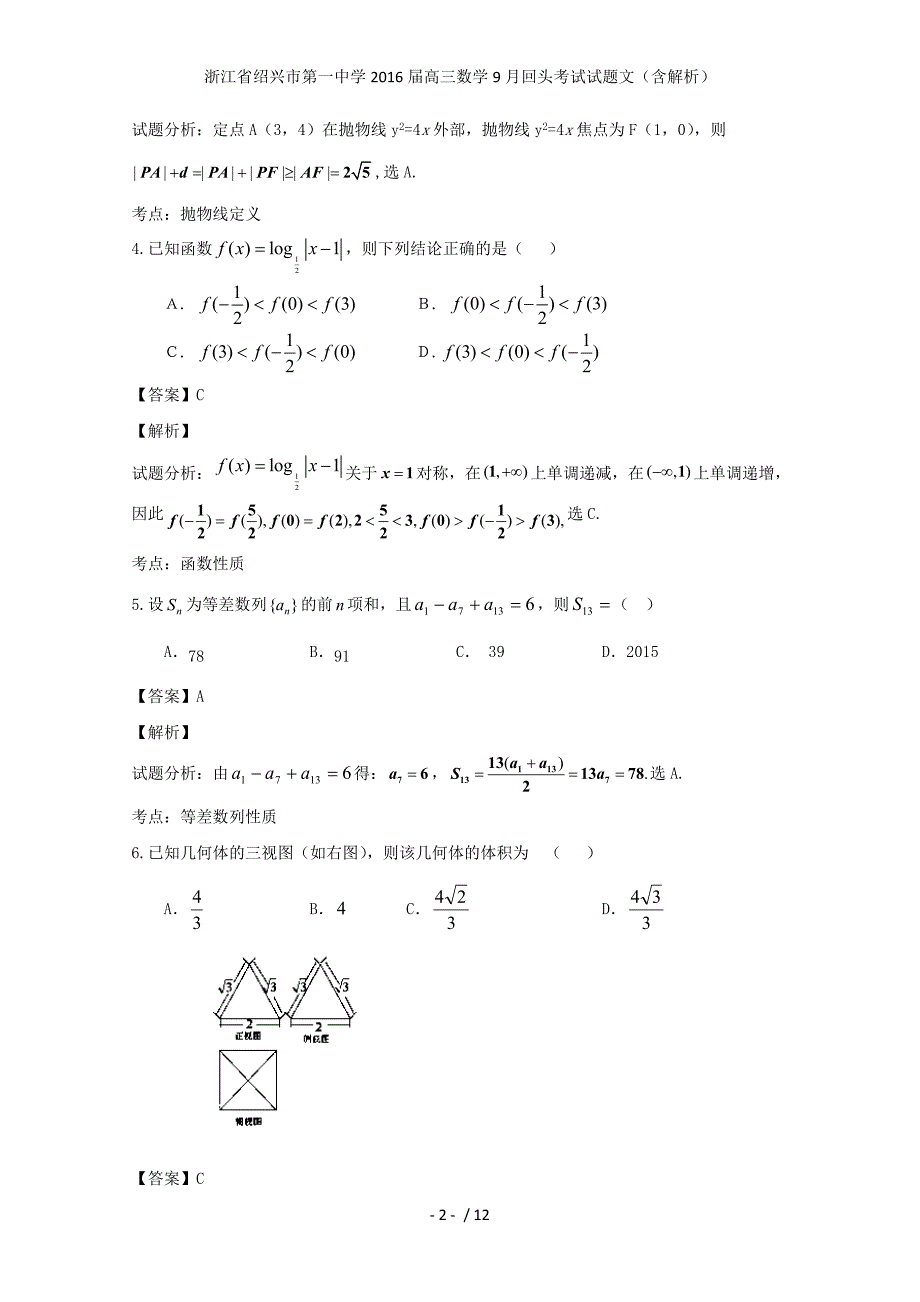 浙江省绍兴市第一中学 2016 届高三数学 9 月回头考试试题文（含解析）
试题分析：定点 A（3，4）在抛物线 y²=4x 外部，抛物线 y²=4x 焦点为 F（1，0），则
|PA|+d=|PA|+|PF|≥|AF|=2√5 ,选 A.
考点：抛物线定义
4.已知函数 f(x)=log_{1/2}|x−1|，则下列结论正确的是（　）
A． f(−1/2)<f(0)<f(3)　　B． f(0)<f(−1/2)<f(3)
C． f(3)<f(−1/2)<f(0)　　D．f(3)<f(0)<f(−1/2)
【答案】C
【解析】
试题分析：f(x)=log_{1/2}|x−1|关于 x=1 对称，在(1,+∞)上单调递减，在(−∞,1)上单调递增，
因此 f(−1/2)=f(5/2),f(0)=f(2),2<5/2<3,f(0)>f(−1/2)>f(3),选 C.
考点：函数性质
5.设 Sₙ 为等差数列{aₙ}的前 n 项和，且 a₁−a₇+a₁₃=6，则 S₁₃=（　）
A．78　　B．91　　C． 39　　D．2015
【答案】A
【解析】
试题分析：由 a₁−a₇+a₁₃=6 得：a₇=6，S₁₃=13(a₁+a₁₃)/2=13a₇=78.选 A.
考点：等差数列性质
6.已知几何体的三视图（如右图），则该几何体的体积为　（　）
A．4/3　　B．4　　C．4√2/3　　D．4√3/3
√3 √3 √3 √3
2 2
正视图 侧视图
俯视图
【答案】C
- 2 - / 12